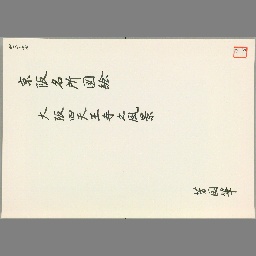 京阪名所図絵
大阪四天王寺之風景
芳国筆